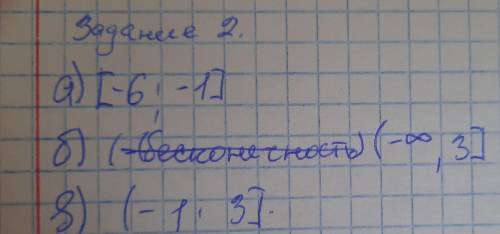 Задание 2.
а) [-6; -1]
б) (-бесконечность) (-∞, 3]
в) (-1; 3].